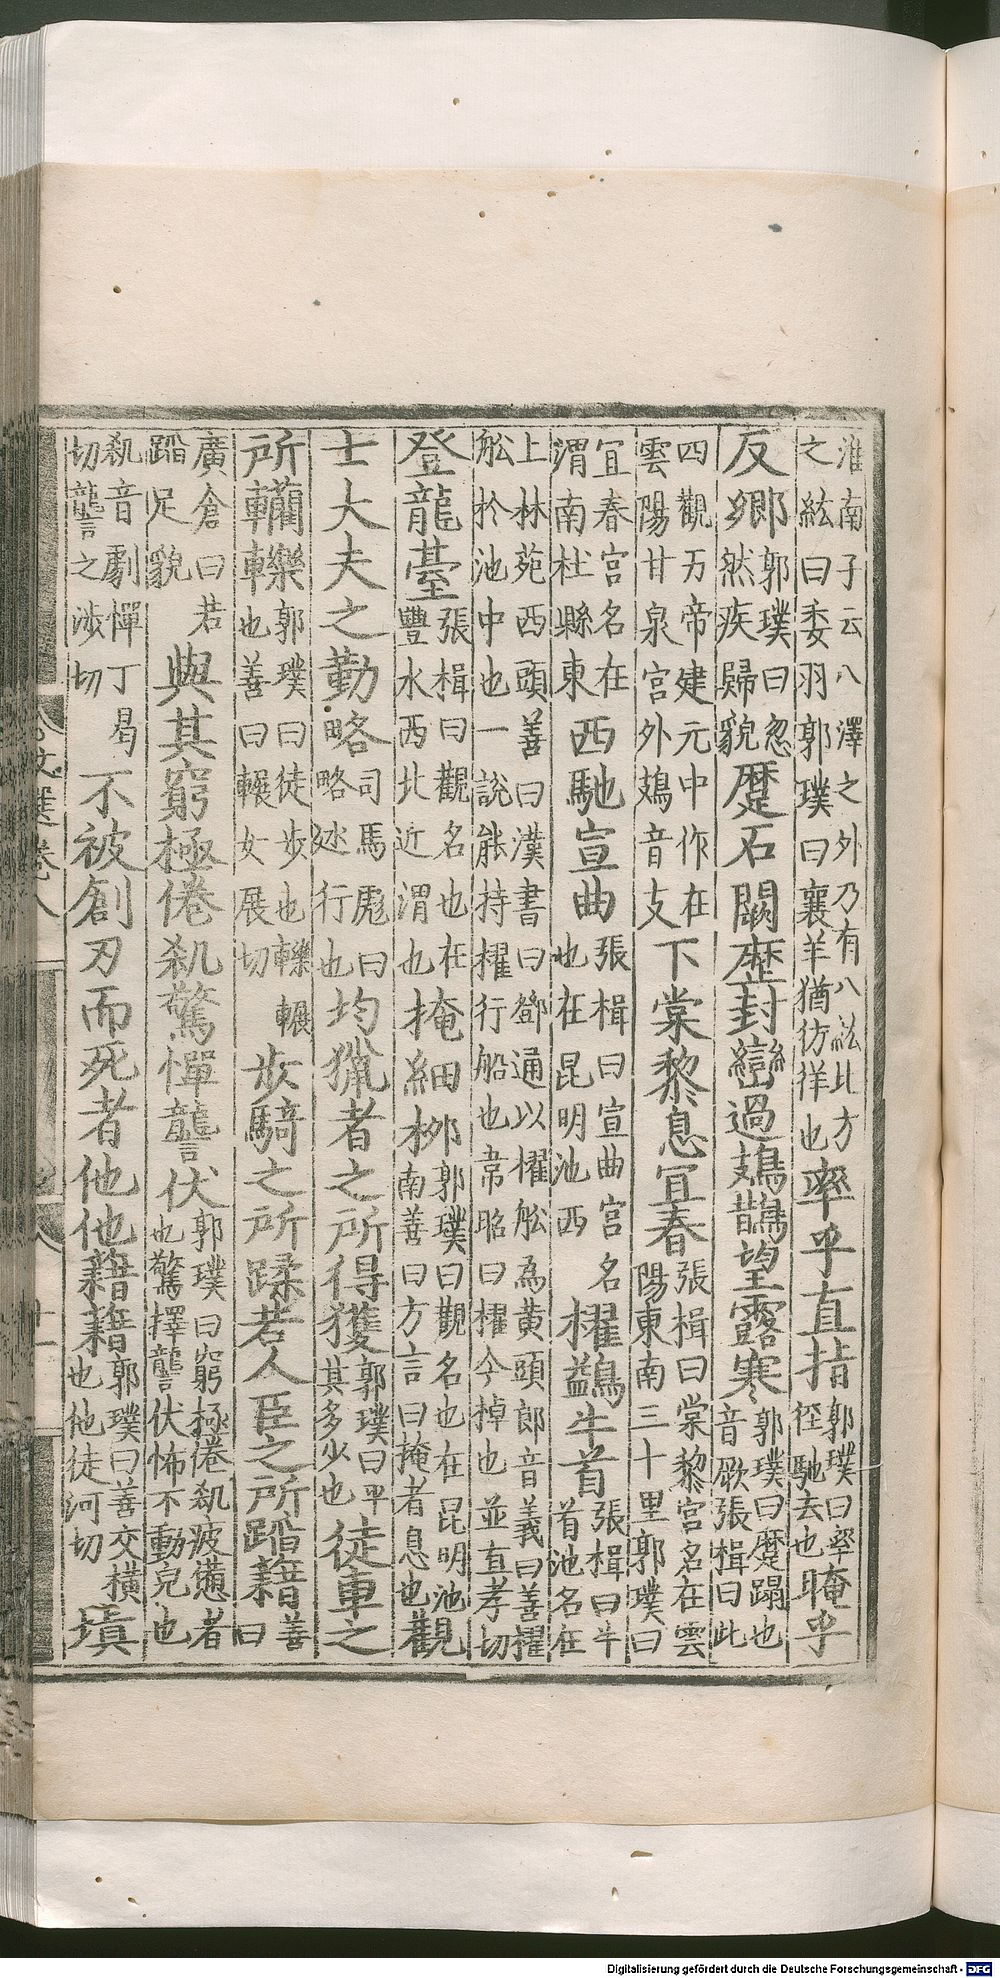 淮南子云八澤之外乃有八紘比方
之紘曰委羽郭璞曰襄羊猶彷徉也率乎直指郭璞曰率徑馳去也晻乎
反鄉郭璞曰忽然疾歸貌蹷石闕歷封巒過鳷鵲望露寒郭璞曰蹷蹋也音厥張楫曰此
四觀万帝建元中作在雲陽甘泉宮外鳷音支下棠黎息宜春張楫曰棠黎宮名在雲陽東南三十里郭璞曰
宜春宮名在渭南杜縣東西馳宣曲張楫曰宣曲宮名也在昆明池西櫂鷁牛首張楫曰牛首池名在
上林苑西頭善曰漢書曰鄧通以櫂舩為黃頭郎音義曰善櫂舩於池中也一說能持櫂行船也韋昭曰櫂今掉也並直孝切
登龍臺張楫曰觀名也在豐水西北近渭也掩細柳郭璞曰觀名也在昆明池南善曰方言曰掩者息也觀
士大夫之勤略司馬彪曰略述行也均獵者之所得獲郭璞曰平其多少也徒車之
所轥轢郭璞曰徒步也轢輾也善曰輾女展切步騎之所蹂若人臣之所蹈籍善曰
廣倉曰若蹈足貌與其窮極倦㓭驚憚讋伏郭璞曰窮極倦㓭疲憊者也驚擇讋伏怖不動皃也
㓭音劇憚丁曷切讋之涉切不被創刃而死者他他籍籍郭璞曰善交橫也他徒河切填
文選卷八
Digitalisierung gefördert durch die Deutsche Forschungsgemeinschaft - DFG